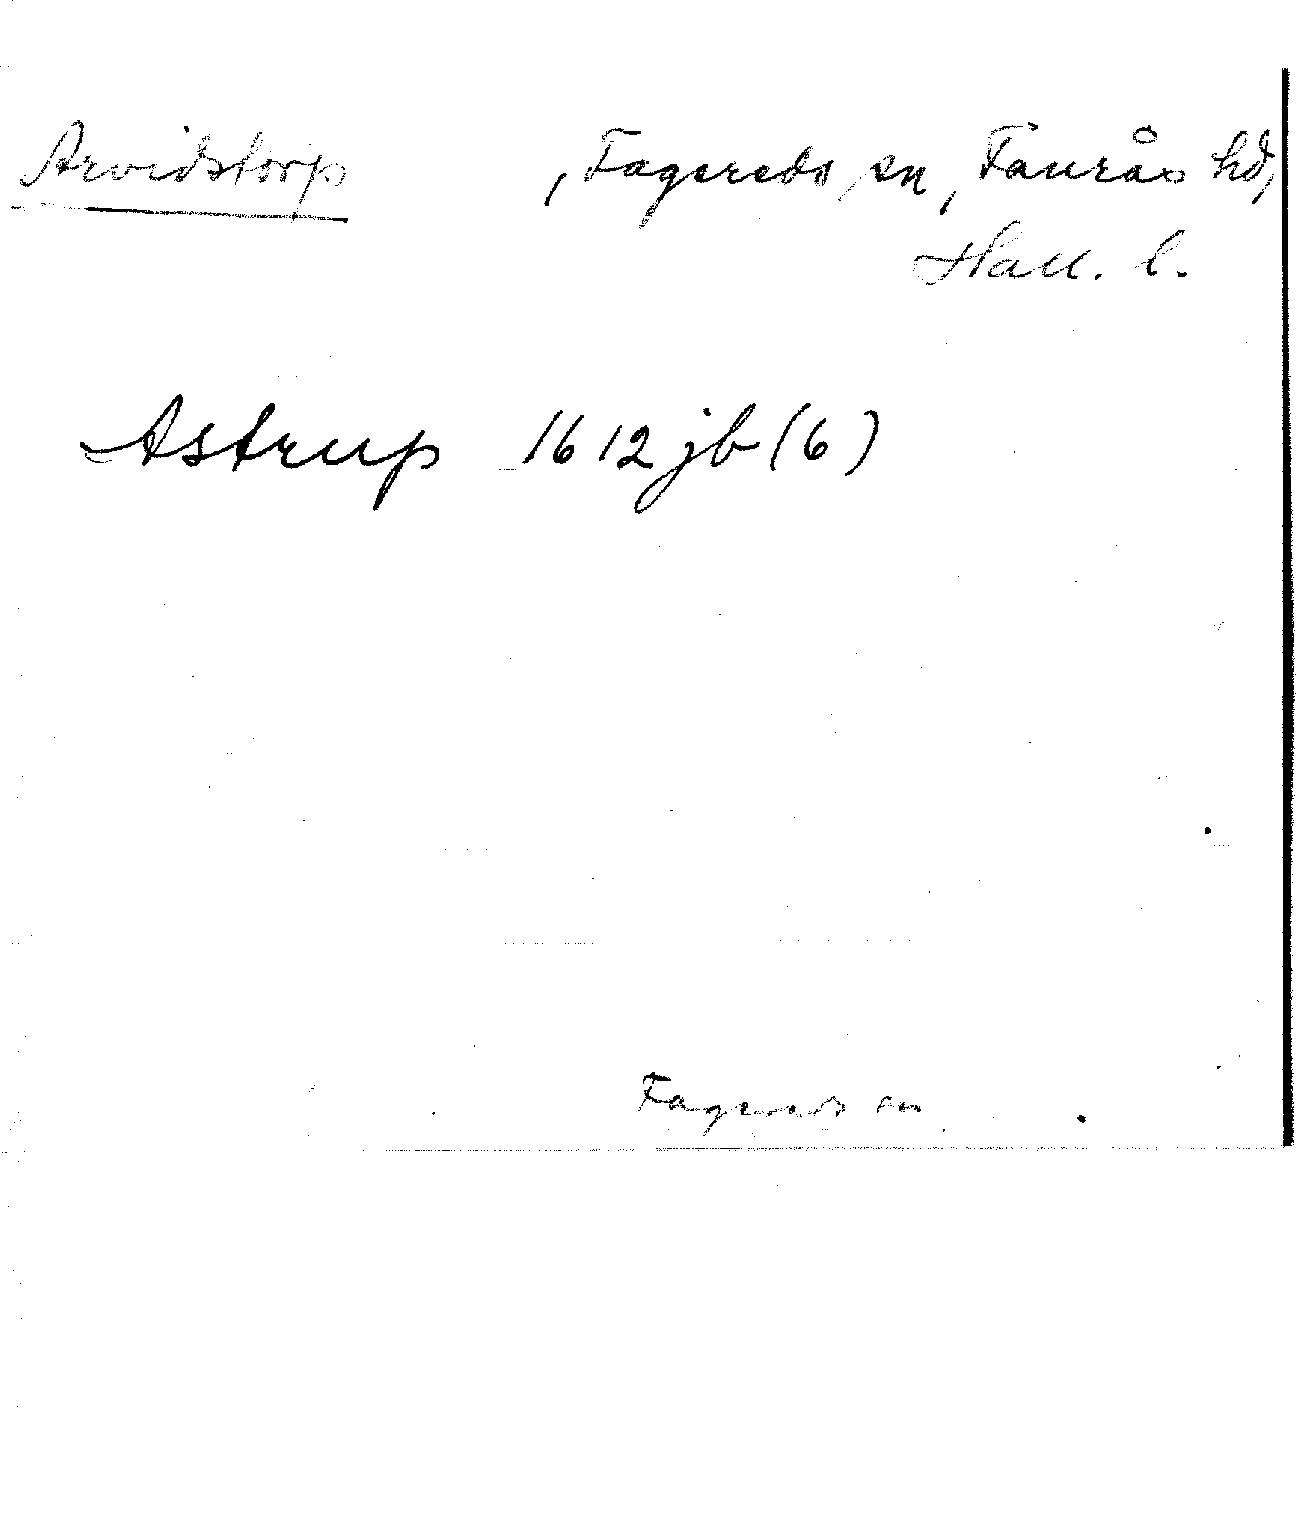 Arvidstorp , Fagereds sn, Faurås hd,
Hall. l.
Astrup 1612 jb (6)
Fagereds sn